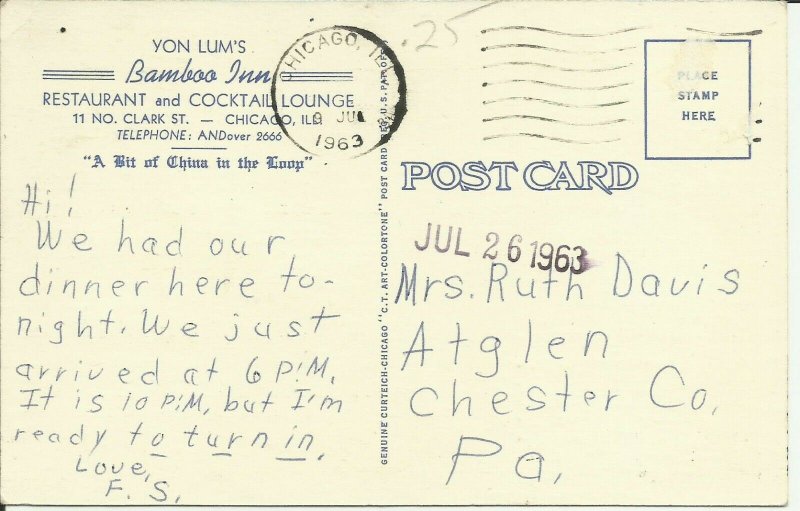 YON LUM'S
Bamboo Inn
RESTAURANT and COCKTAIL LOUNGE
11 NO. CLARK ST. — CHICAGO, ILL
TELEPHONE: ANDover 2666
"A Bit of China in the Loop"
Hi!
We had our
dinner here to-
night. We just
arrived at 6 P.M.
It is 10 P.M, but I'm
ready to turn in.
Love,
F. S.
CHICAGO, ILL
JUL
1963
.25
GENUINE CURTEICH-CHICAGO "C.T. ART-COLORTONE" POST CARD REG. U.S. PAT. OFF.
PLACE
STAMP
HERE
POST CARD
JUL 26 1963
Mrs. Ruth Davis
Atglen
Chester Co,
Pa,